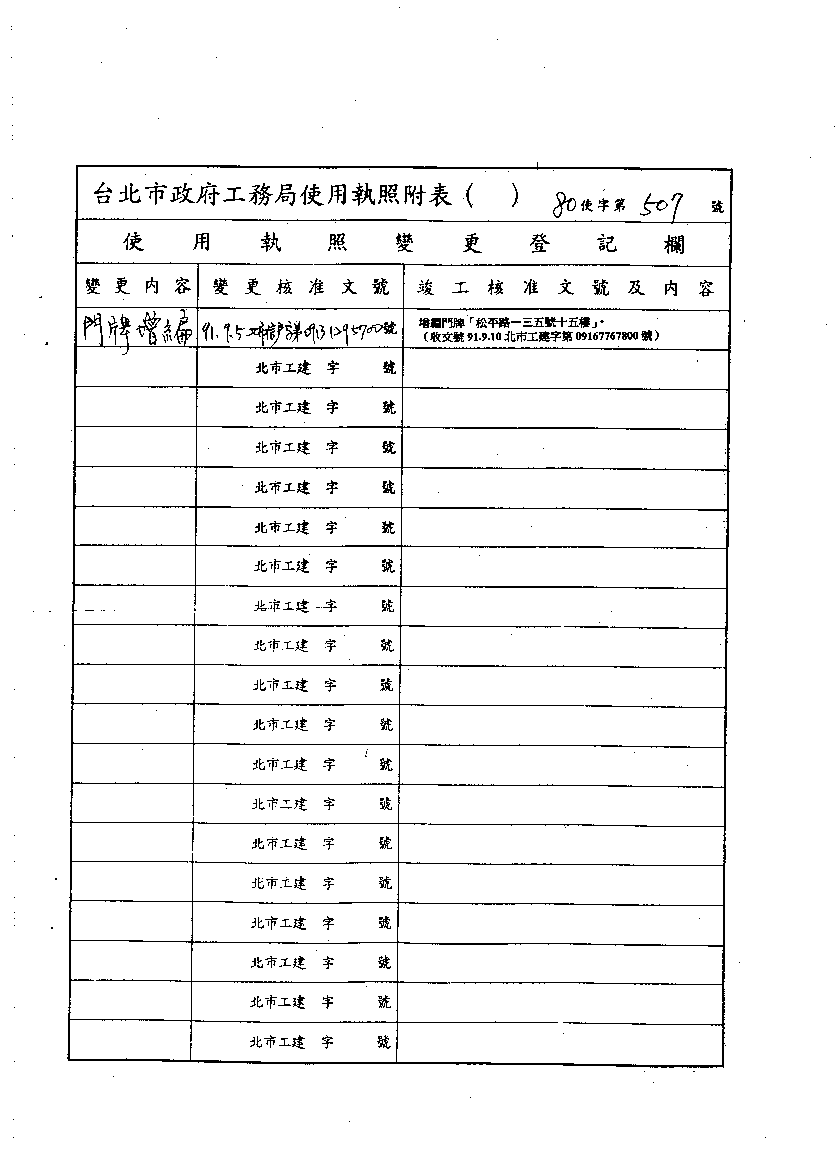 台北市政府工務局使用執照附表（　）　80使字第 507 號
使用執照變更登記欄
變更內容　變更核准文號　竣工核准文號及內容
門牌增編　91.9.5 號　增編門牌「松平路一三五號十五樓」。
（收文號 91.9.10 北市工建字第 09167767800 號）
北市工建　字　號
北市工建　字　號
北市工建　字　號
北市工建　字　號
北市工建　字　號
北市工建　字　號
北市工建　字　號
北市工建　字　號
北市工建　字　號
北市工建　字　號
北市工建　字　號
北市工建　字　號
北市工建　字　號
北市工建　字　號
北市工建　字　號
北市工建　字　號
北市工建　字　號
北市工建　字　號